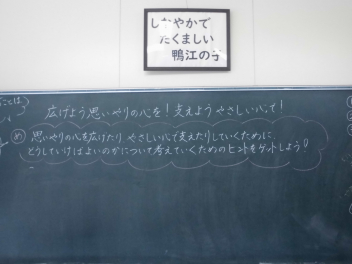 しなやかで
たくましい
鴨江の子
ことは
広げよう思いやりの心を!支えようやさしい心で!
め 思いやりの心を広げたり やさしい心で支えたりしていくために、
どうしていけばよいのかについて考えていくためのヒントをゲットしよう!